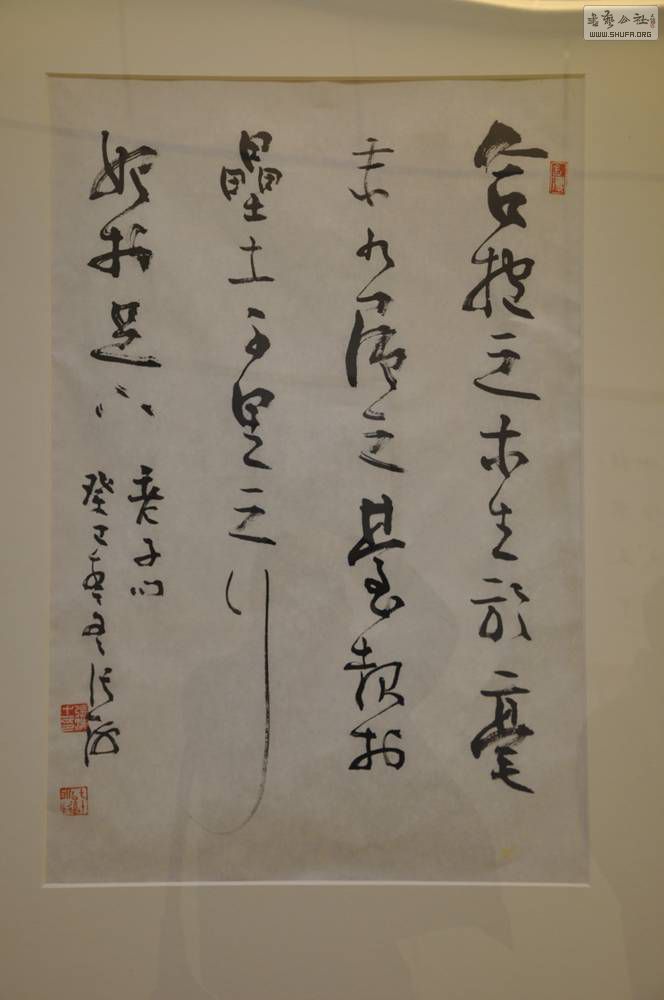 合抱之木生於毫
末九層之臺起於
壘土千里之行
始於足下
老子
癸巳
書藝公社
WWW.SHUFA.ORG